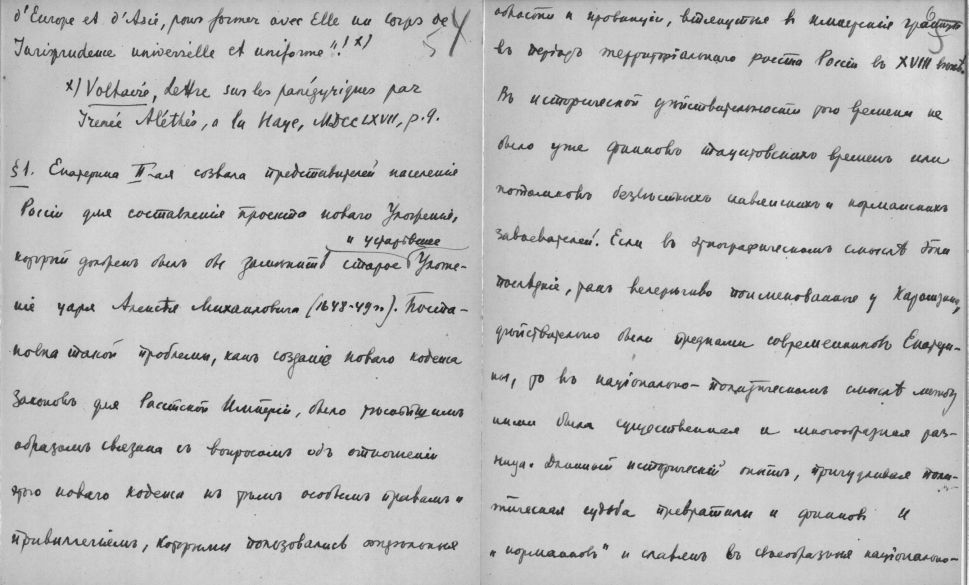 d'Europe et d'Asie, pour former avec Elle un corps de
Jurisprudence universelle et uniforme"! x)
x) Voltaire, Lettre sur les panégyriques par
Irenée Aléthès, a la Haye, MDCCLXVII, p. 9.
§1. Екатерина II-ая созвала представителей населенія
Россіи для составленія проекта новаго Уложенія,
и устарѣвшее
который долженъ былъ бы замѣнить старое Уложе-
ніе царя Алексѣя Михаиловича (1648-49 гг.). Поста-
новка такой проблемы, какъ созданіе новаго кодекса
законовъ для Россійской Имперіи, была
образомъ связана съ вопросомъ объ отношеніи
этого новаго кодекса къ тѣмъ особымъ правамъ и
привиллегіямъ, которыми пользовались отдѣльныя
5
6
области и провинціи, втянутыя въ имперскія границы
въ періодъ территоріальнаго роста Россіи въ XVIII вѣкѣ.
Въ исторической дѣйствительности того времени не
было уже финновъ тацитовскихъ временъ или
потомковъ безвѣстныхъ славянскихъ и норманскихъ
завоевателей. Если въ этнографическомъ смыслѣ были
послѣдніе, такъ велерѣчиво поименованные у Карамзина,
дѣйствительно были предками современниковъ Екатери-
ны, то въ національно-политическомъ смыслѣ между
ними была существенная и многообразная раз-
ница. Длинный историческій опытъ, причудливая поли-
тическая судьба превратили и финновъ и
„норманновъ" и славянъ въ своеобразныя національно-